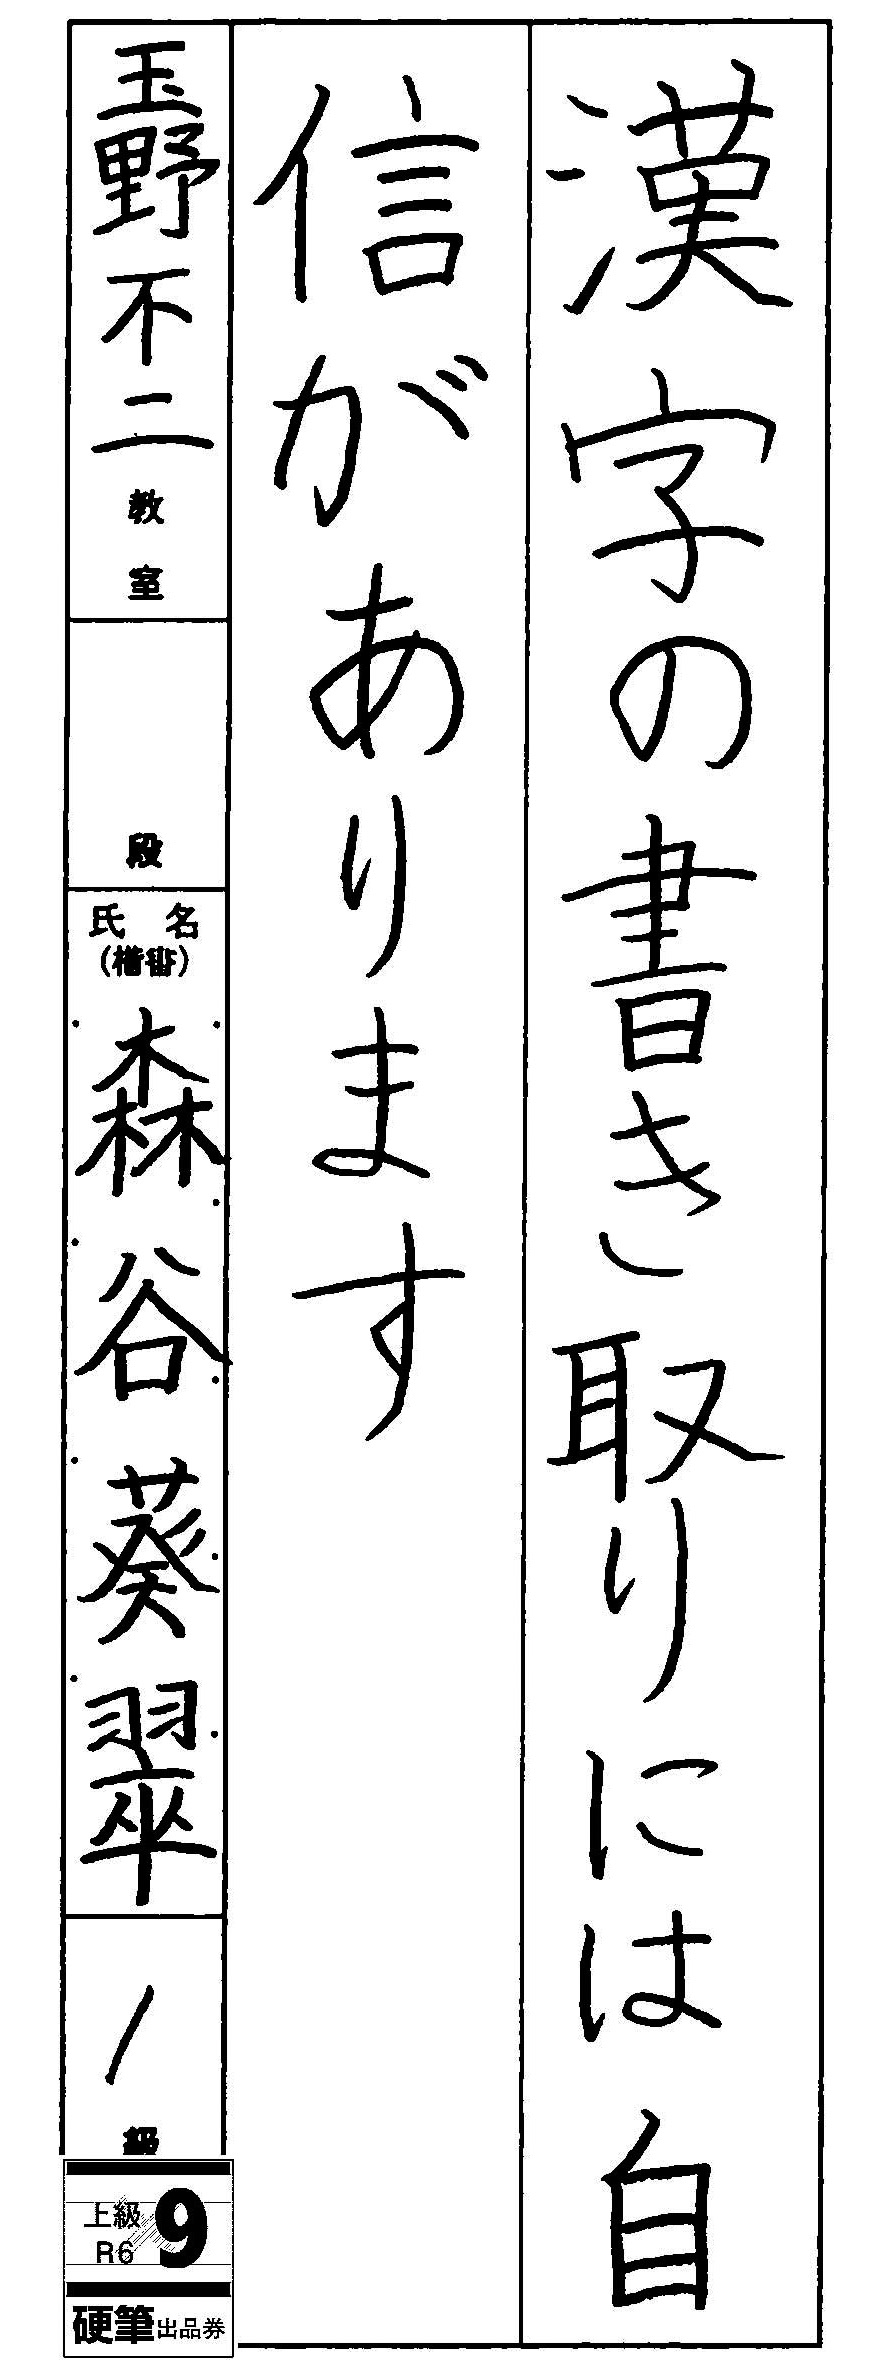 漢字の書き取りには自
信があります
玉野不二教室
段
氏名
(楷書)
森谷葵翠
1級
上級
R6
9
硬筆出品券